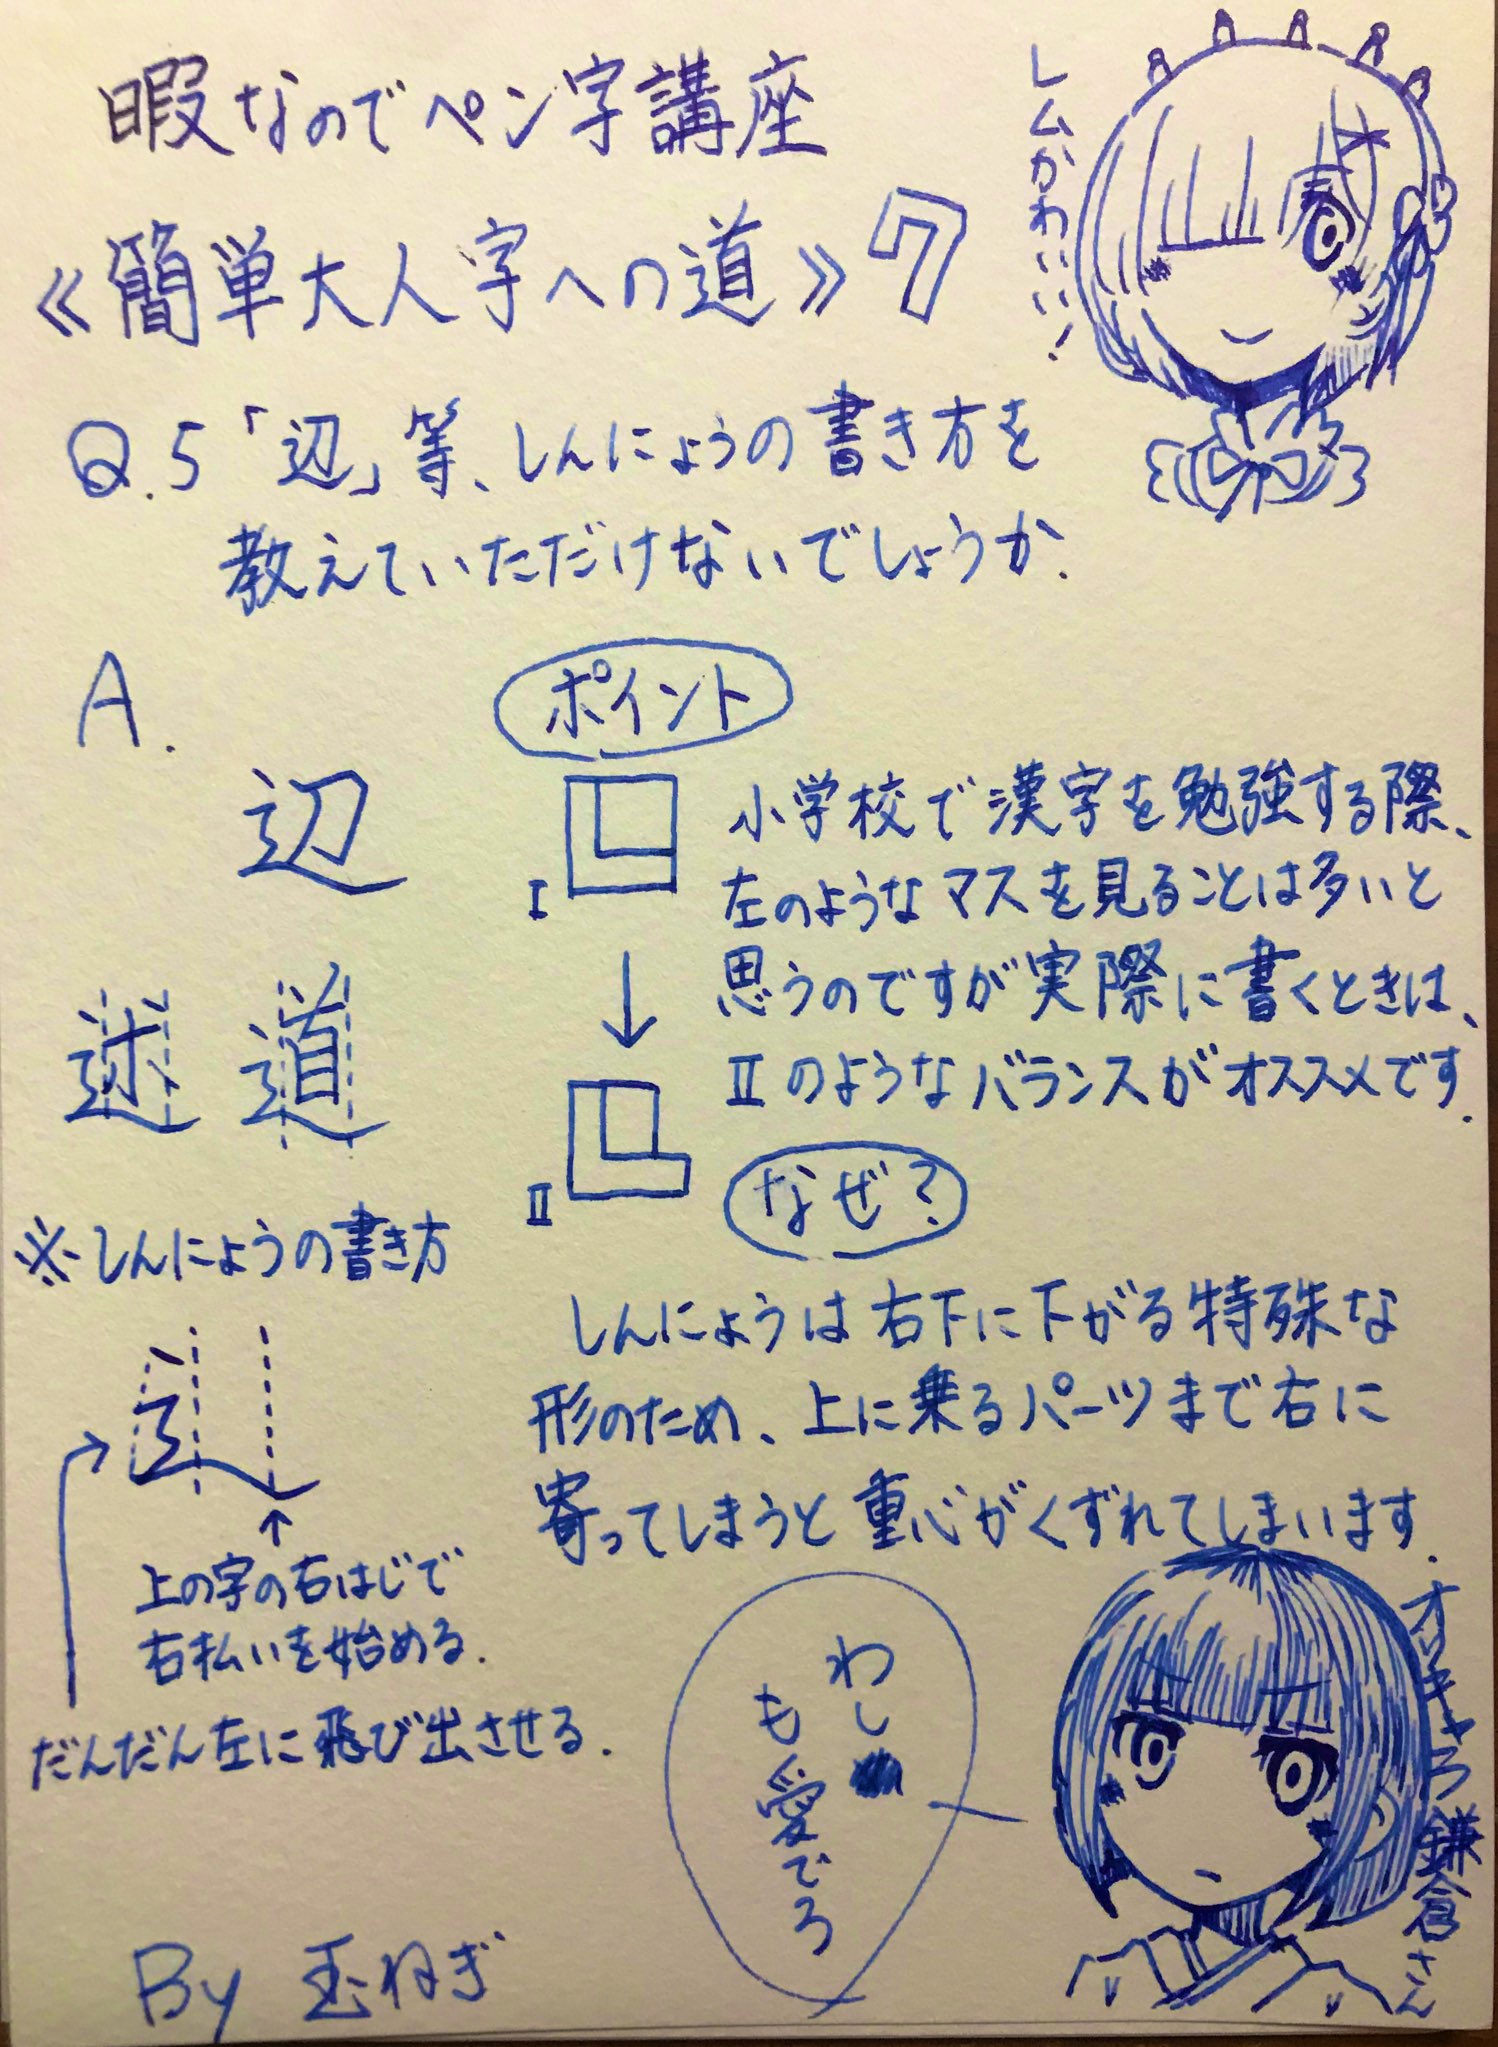 暇なのでペン字講座
レムかわいい!
《簡単大人字への道》7
Q.5「辺」等、しんにょうの書き方を
教えていただけないでしょうか.
A.
辺
述 道
※しんにょうの書き方
上の字の右はじで
右払いを始める.
だんだん左に飛び出させる.
ポイント
I
小学校で漢字を勉強する際、
左のようなマスを見ることは多いと
思うのですが実際に書くときは、
IIのようなバランスがオススメです.
II
なぜ?
しんにょうは右下に下がる特殊な
形のため、上に乗るパーツまで右に
寄ってしまうと重心がくずれてしまいます.
わし
も愛でろ
オリキャラ鎌倉さん
By 玉ねぎ